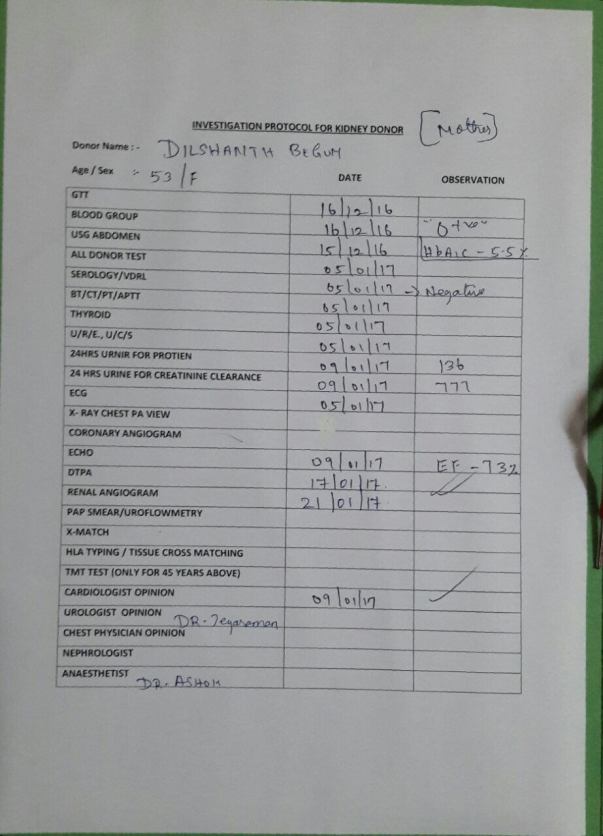 INVESTIGATION PROTOCOL FOR KIDNEY DONOR [Mother]
Donor Name :- DILSHANTH BEGUM
Age / Sex :- 53/F DATE OBSERVATION
GTT 16/12/16
BLOOD GROUP 16/12/16 "O+ve"
USG ABDOMEN 15/12/16 HbA1C - 5.5%
ALL DONOR TEST 05/01/17
SEROLOGY/VDRL 05/01/17 → Negative
BT/CT/PT/APTT 05/01/17
THYROID 05/01/17
U/R/E., U/C/S 05/01/17
24HRS URNIR FOR PROTIEN 09/01/17 136
24 HRS URINE FOR CREATININE CLEARANCE 09/01/17 777
ECG 05/01/17
X- RAY CHEST PA VIEW
CORONARY ANGIOGRAM
ECHO 09/01/17 EF - 73%
DTPA 17/01/17.
RENAL ANGIOGRAM 21/01/17
PAP SMEAR/UROFLOWMETRY
X-MATCH
HLA TYPING / TISSUE CROSS MATCHING
TMT TEST (ONLY FOR 45 YEARS ABOVE)
CARDIOLOGIST OPINION 09/01/17
UROLOGIST OPINION DR. Jegaraman
CHEST PHYSICIAN OPINION
NEPHROLOGIST
ANAESTHETIST DR. ASHOK